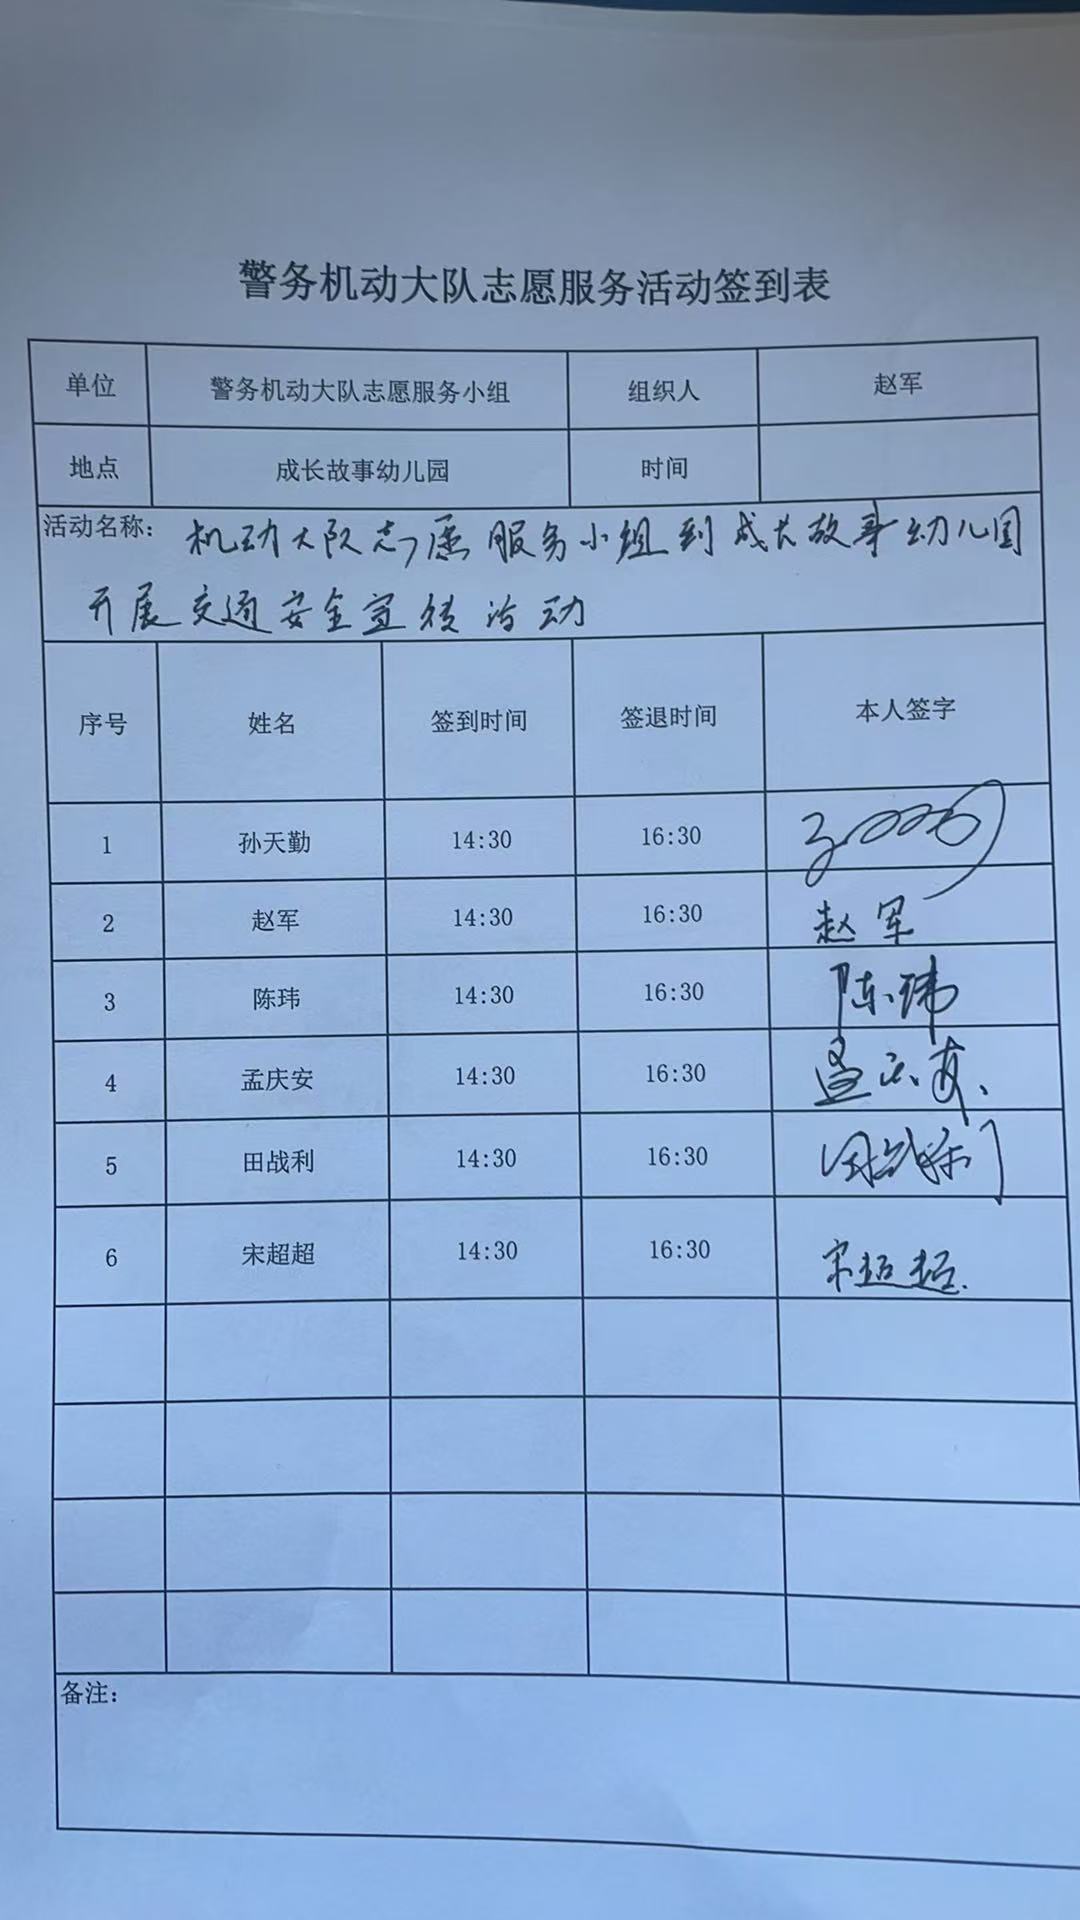 警务机动大队志愿服务活动签到表
单位 警务机动大队志愿服务小组 组织人 赵军
地点 成长故事幼儿园 时间
活动名称: 机动大队志愿服务小组到成长故事幼儿园
开展交通安全宣传活动
序号 姓名 签到时间 签退时间 本人签字
1 孙天勤 14:30 16:30
2 赵军 14:30 16:30 赵军
3 陈玮 14:30 16:30 陈玮
4 孟庆安 14:30 16:30 孟庆安
5 田战利 14:30 16:30 田战利
6 宋超超 14:30 16:30 宋超超
备注: